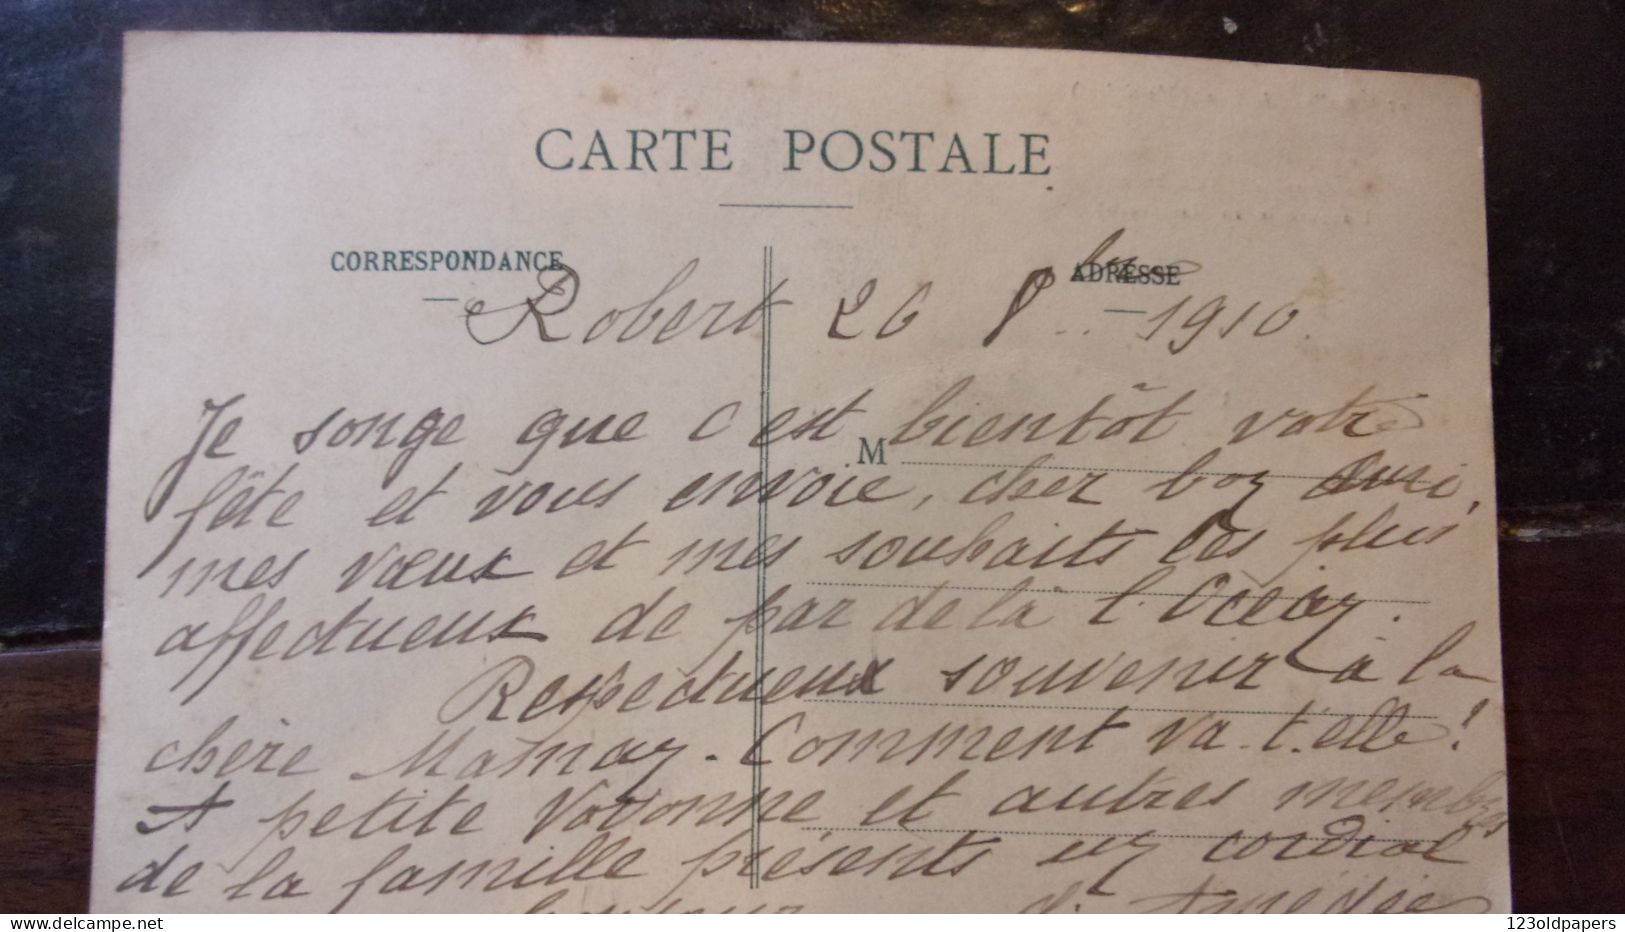 CARTE POSTALE
CORRESPONDANCE
ADRESSE
Robert 26 8bre 1910.
M
Je songe que c'est bientôt votre
fête et vous envoie, cher bon ami,
mes vœux et mes souhaits les plus
affectueux de par delà l'Océan.
Respectueux souvenir à la
chère Maman. Comment va-t-elle!
A petite Vovonne et autres membres
de la famille présents un cordial
bonjour d'Amédée
www.delcampe.net
123oldpapers